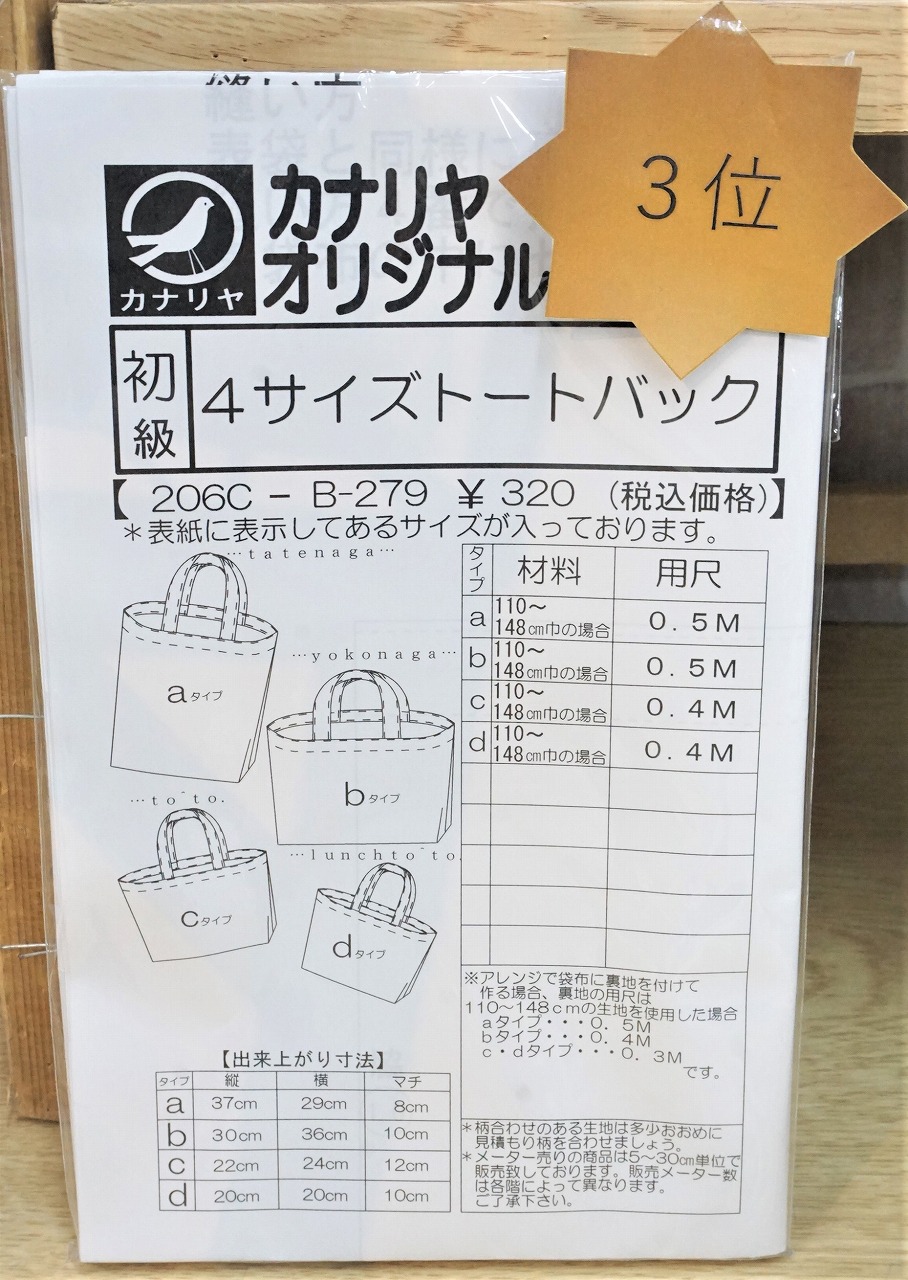 縫い方
表袋と同様に
3位
カナリヤ
オリジナル
カナリヤ
初級
4サイズトートバック
【 206C - B-279 ¥320 (税込価格)】
*表紙に表示してあるサイズが入っております。
…tatenaga…
aタイプ
…yokonaga…
bタイプ
…to¯to.
cタイプ
…lunchto¯to.
dタイプ
タイプ 材料 用尺
a 110〜148㎝巾の場合 0.5M
b 110〜148㎝巾の場合 0.5M
c 110〜148㎝巾の場合 0.4M
d 110〜148㎝巾の場合 0.4M
※アレンジで袋布に裏地を付けて
作る場合、裏地の用尺は
110〜148cmの生地を使用した場合
aタイプ・・・0.5M
bタイプ・・・0.4M
c・dタイプ・・・0.3M
です。
*柄合わせのある生地は多少おおめに
見積もり柄を合わせましょう。
*メーター売りの商品は5〜30㎝単位で
販売致しております。販売メーター数
は各階によって異なります。
ご了承下さい。
【出来上がり寸法】
タイプ 縦 横 マチ
a 37cm 29cm 8cm
b 30cm 36cm 10cm
c 22cm 24cm 12cm
d 20cm 20cm 10cm